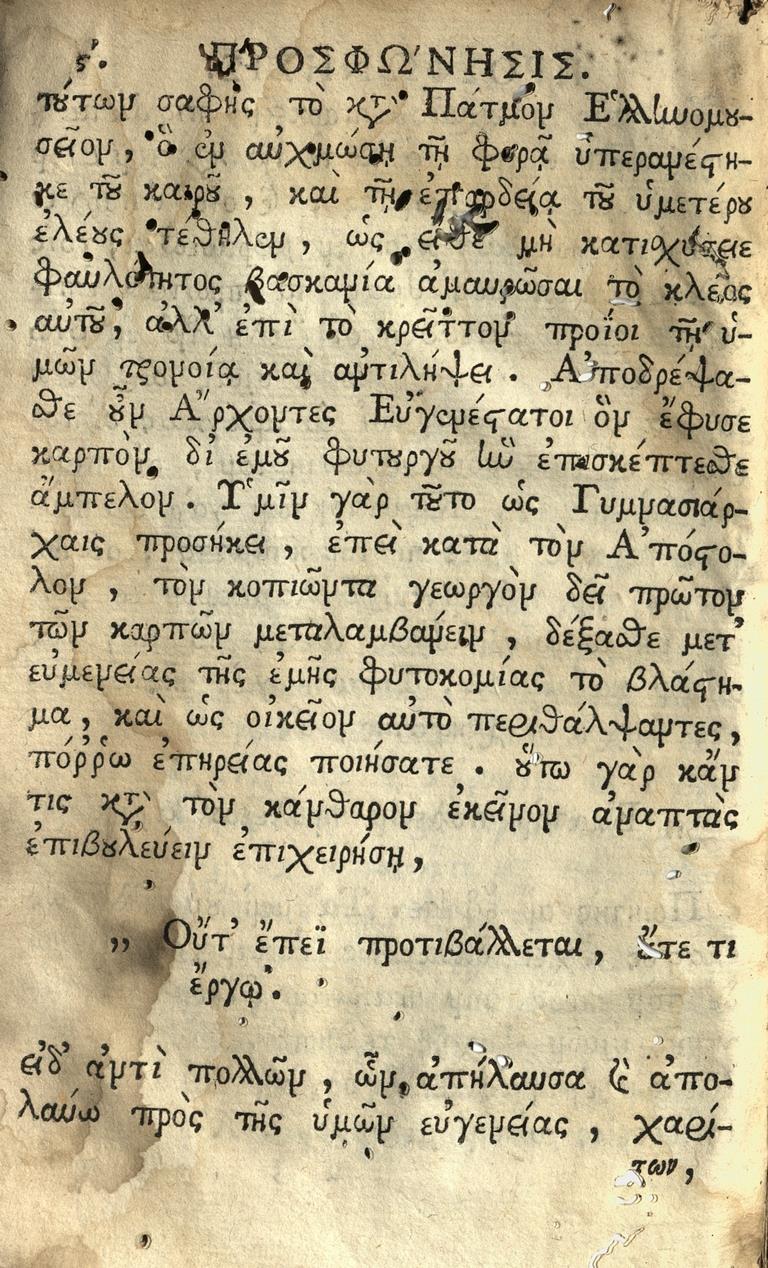 ς΄. ΠΡΟΣΦΩ΄ΝΗΣΙΣ.
τούτων σαφὴς τὸ κτ̀ Πάτμον Ἑλληνομου-
σεῖον, ὃ ἐν αὐχμώσῃ τῇ φορᾷ ὑπεραμέστη-
κε τοῦ καιροῦ, καὶ τῇ ἐπαρδείᾳ τοῦ ὑμετέρου
ἐλέους τέθηλεν, ὡς εἴθε μὴ κατισχύσειε
φαυλότητος βασκανία ἀμαυρῶσαι τὸ κλέος
αὐτοῦ, ἀλλ' ἐπὶ τὸ κρεῖττον προΐοι τῇ ὑ-
μῶν προνοίᾳ καὶ ἀντιλήψει. Ἀποδρέψα-
σθε οὖν Ἄρχοντες Εὐγενέστατοι ὃν ἔφυσε
καρπὸν δι' ἐμοῦ φυτουργοῦ ἣν ἐπισκέπτεσθε
ἄμπελον. Ὑμῖν γὰρ τοῦτο ὡς Γυμνασιάρ-
χαις προσήκει, ἐπεὶ κατὰ τὸν Ἀπόστο-
λον, τὸν κοπιῶντα γεωργὸν δεῖ πρῶτον
τῶν καρπῶν μεταλαμβάνειν, δέξασθε μετ'
εὐμενείας τῆς ἐμῆς φυτοκομίας τὸ βλάστη-
μα, καὶ ὡς οἰκεῖον αὐτὸ περιθάλψαντες,
πόῤῥω ἐπηρείας ποιήσατε. οὕτω γὰρ κἄν
τις κτ̀ τὸν κάνθαρον ἐκεῖνον ἀναπτὰς
ἐπιβουλεύειν ἐπιχειρήσῃ,
,, Οὔτ' ἔπεϊ προτιβάλλεται, οὔτε τι
ἔργῳ.
εἰδ' ἀντὶ πολλῶν, ὧν ἀπήλαυσα καὶ ἀπο-
λαύω πρὸς τῆς ὑμῶν εὐγενείας, χαρί-
των,